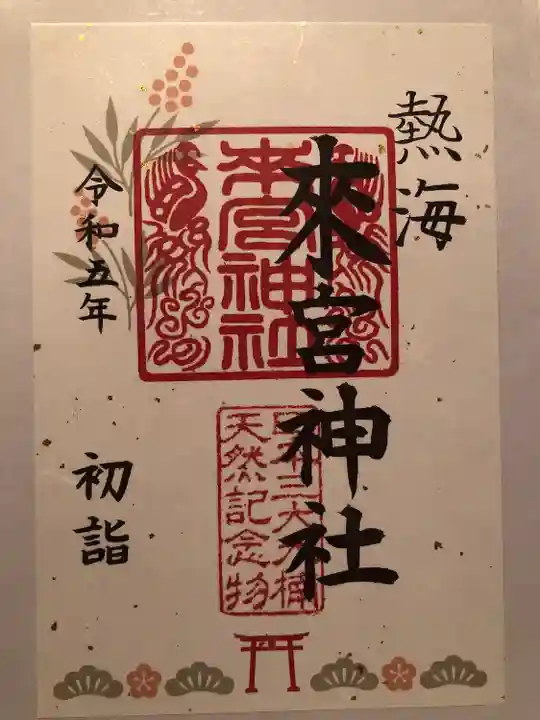 熱海
來宮神社
令和五年
初詣
來宮神社
天然記念物